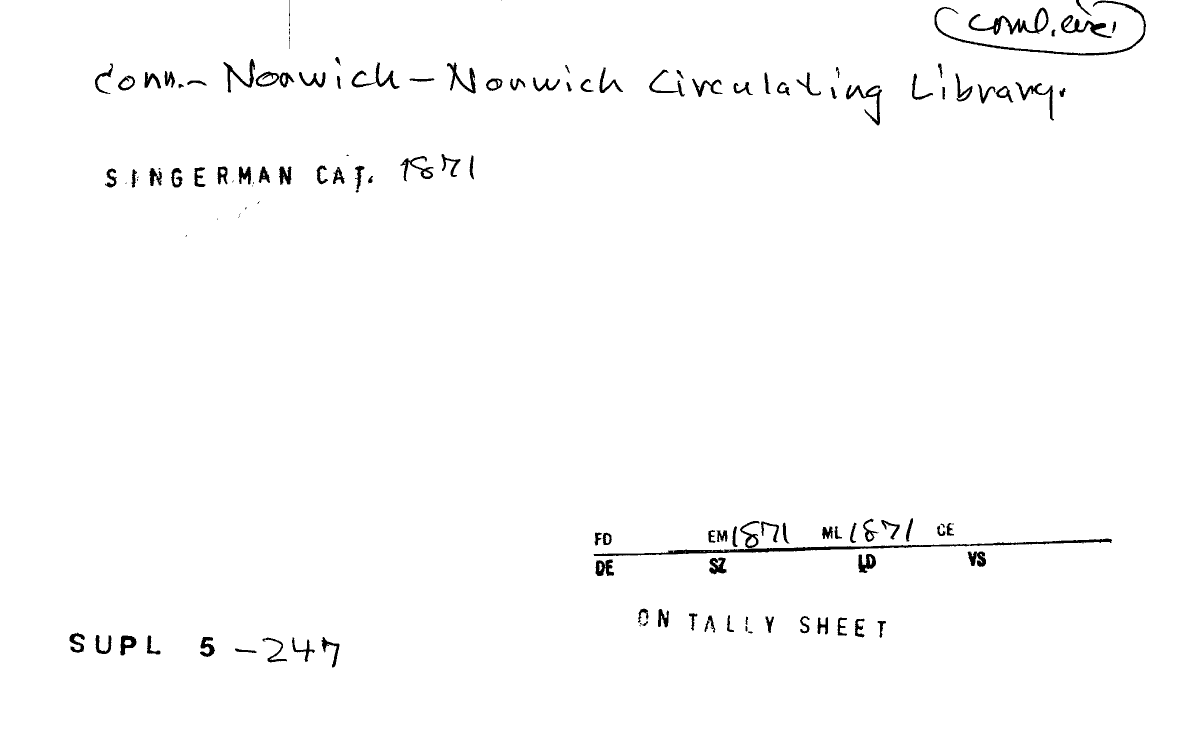 coml. circ.
Conn. - Norwich - Norwich Circulating Library.
SINGERMAN CAT. 1871
FD EM 1871 ML 1871 CE
DE SZ LD VS
ON TALLY SHEET
SUPL 5 - 247